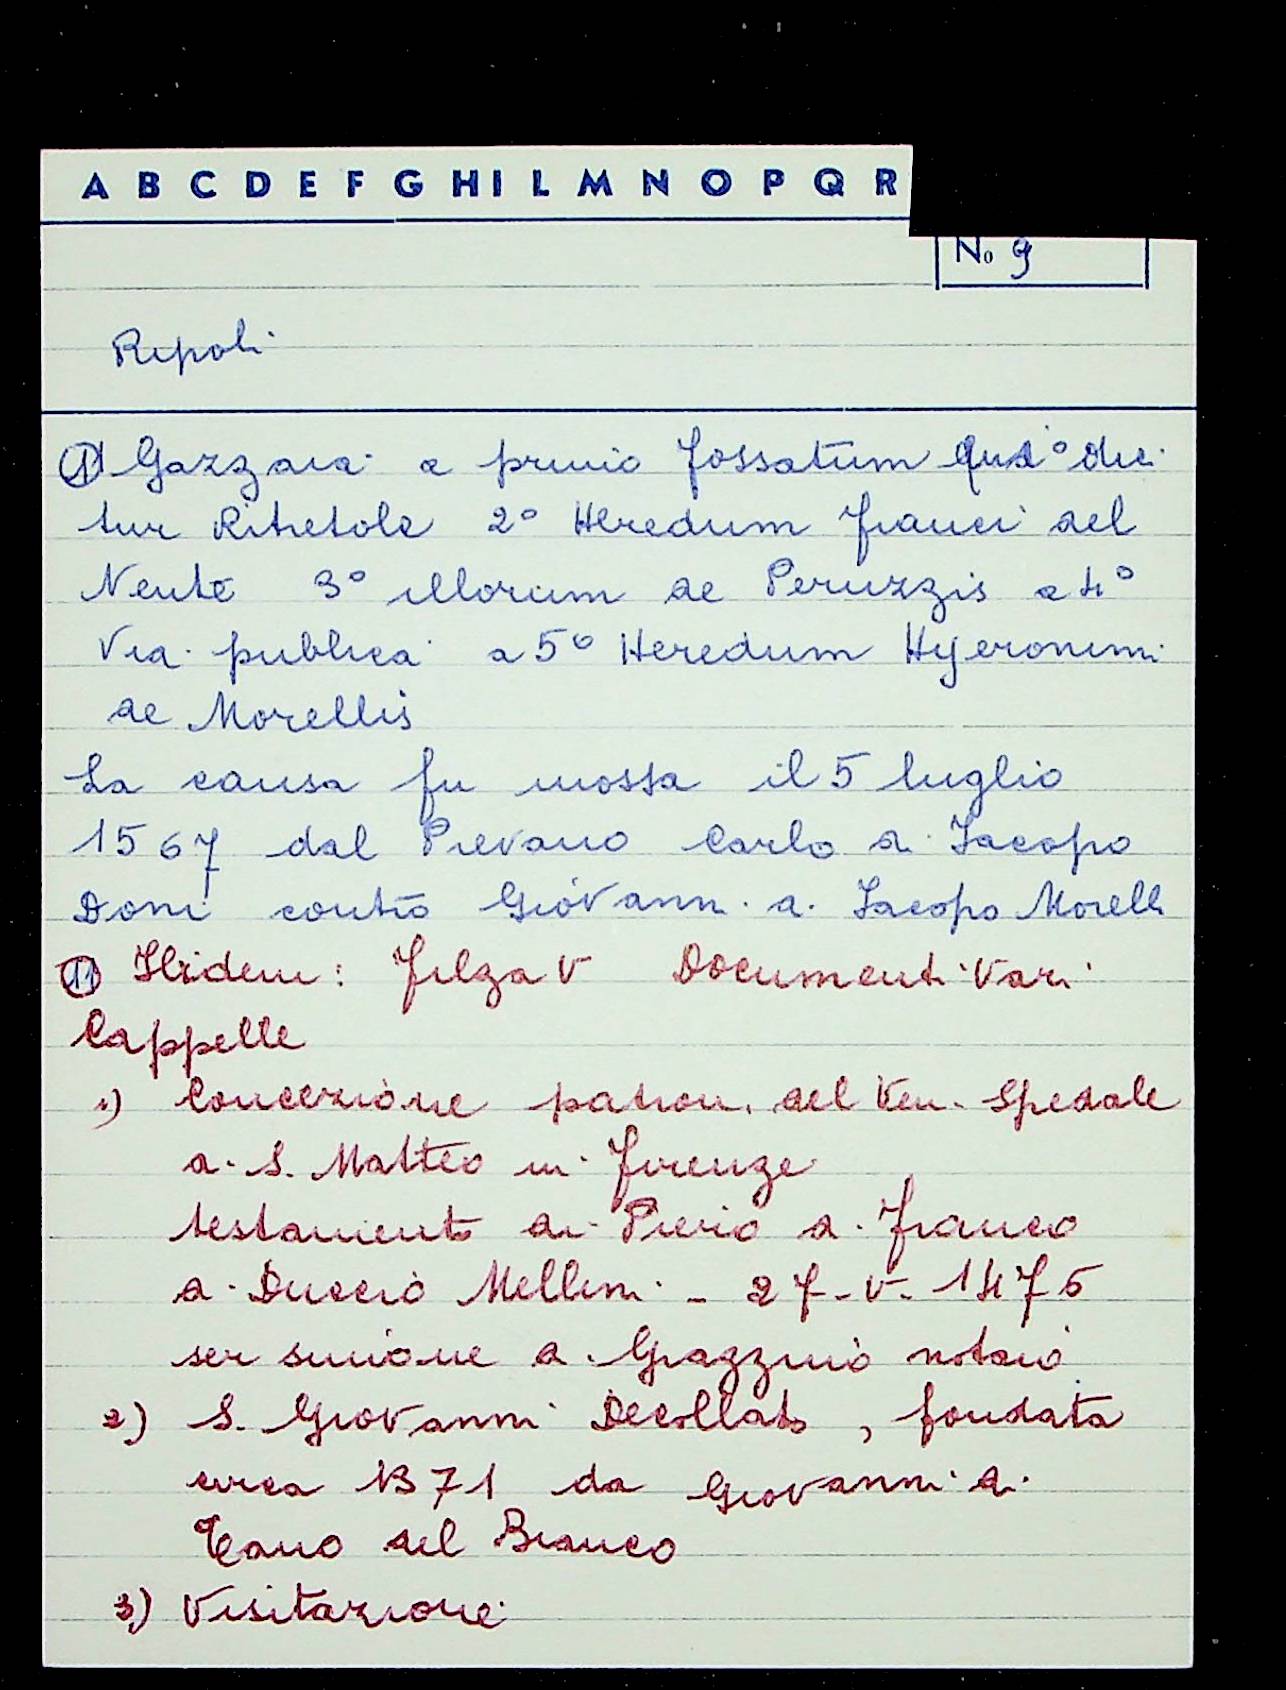 A B C D E F G H I L M N O P Q R
No 9
Ripoli
① Gazzaia a primo fossatum quod dici
tur Ritretole 2° Heredum Franci del
Nente 3° illorum de Peruzzis a 4°
Via publica a 5° Heredum Hyeronimi
de Morellis
La causa fu mossa il 5 luglio
1567 dal Pievano Carlo di Iacopo
Doni contro Giovanni di Iacopo Morelli
⑪ Ibidem: Filza V Documenti Vari
Cappelle
1) Concezione patron. del Ven. Spedale
di S. Matteo in Firenze
testamento di Piero di Franco
di Duccio Mellini - 27-V-1475
ser simone di Grazzino notaio
2) S. Giovanni Decollato, fondata
circa 1371 da Giovanni di
Tano del Bianco
3) Visitazione